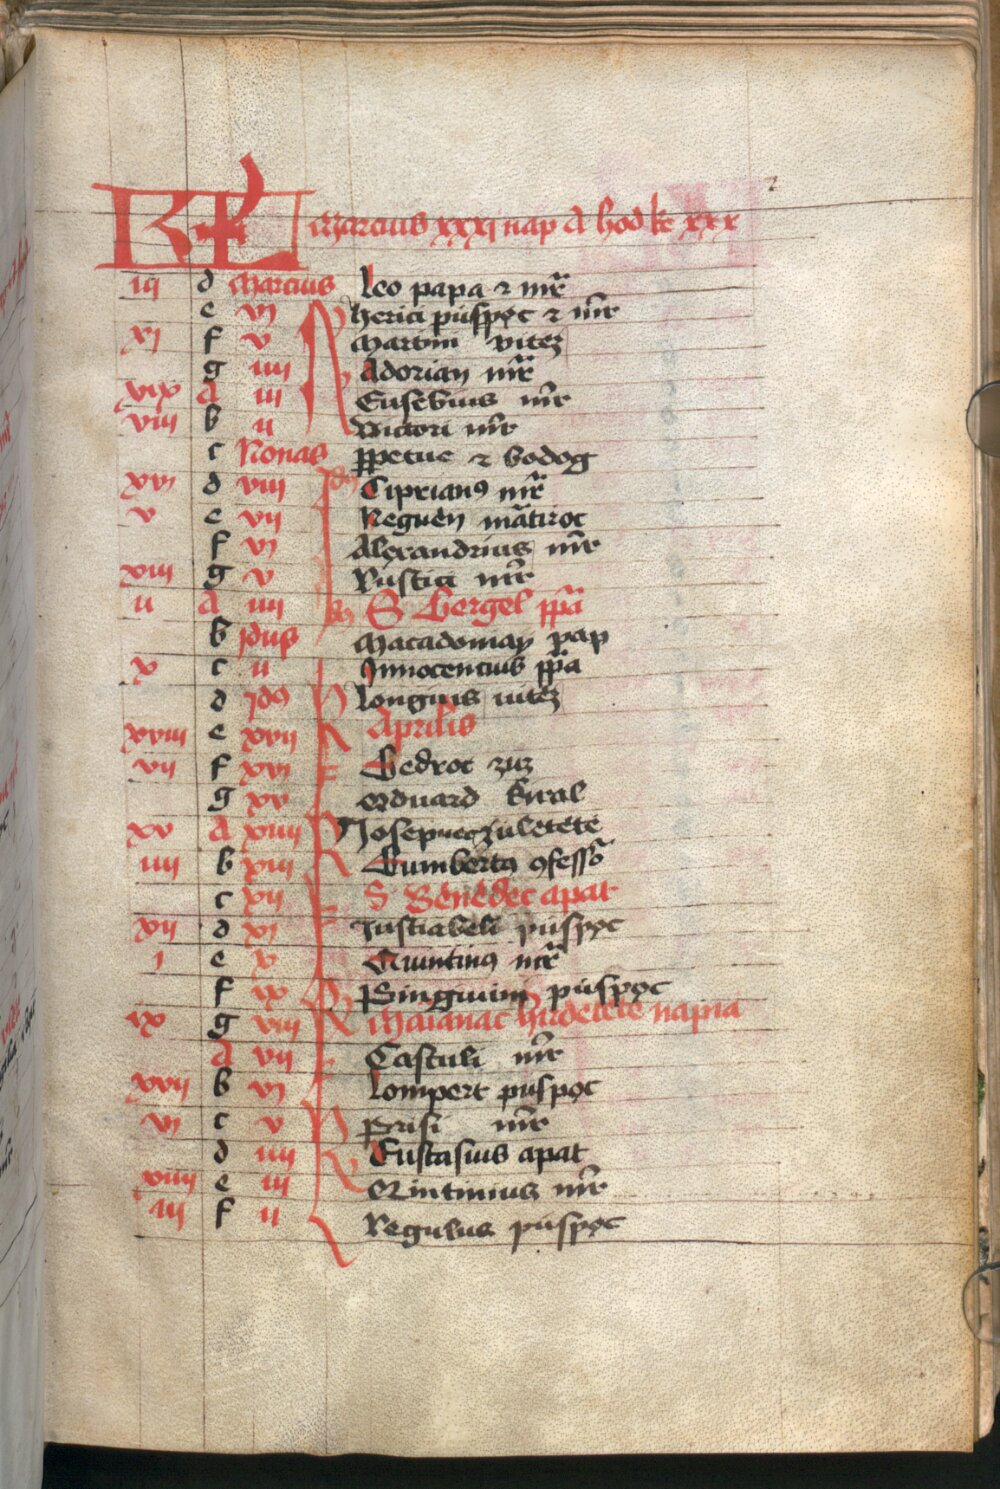 KL Marcius xxxi nap A hod ke xxx
iii d Marcius Leo papa ⁊ mr̃
e vi herici püspọc ⁊ mr̃
xi f v Martini vitez
g iiii Adorian mr̃
xix A iii Eusebius mr̃
viii b ii Victori mr̃
c Nonas ꝑpetue ⁊ bodog
xvi d viii Ciprianꝯ mr̃
v e vii Neguen mãtiroc
f vi Alexandrius mr̃
xiii g v Rustici mr̃
ii A iiii S Gergel pp̃a
b jdus Macadoniay pap
x c ii Innocencius pp̃a
d jdꝯ Longius vitez
xviii e xvii Aprilis
vii f xvi Gedrot zuz
g xv Eduard kiral
xv A xiiii Josep
iiii b xiii Gumbertꝯ ꝯfessõ
c xii S Benedec apat
xii d xi püspọc
i e x Quintinꝯ mr̃
f ix püspọc
ix g viii Marianac hirdetete napia
A vii Castuli mr̃
xvii b vi Lompert püspọc
vi c v Prisi mr̃
d iiii Eustasius apat
xiiii e iii Quintinius mr̃
iii f ii Regulus püspọc